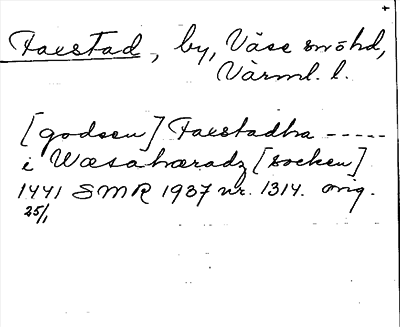 +
Faestad, by, Väse snöhd,
Värml. l.
[godsen] Faestadha -----
i Wæsahæradz [socken]
1441 SMR 1937 nr. 1314. orig.
25/1